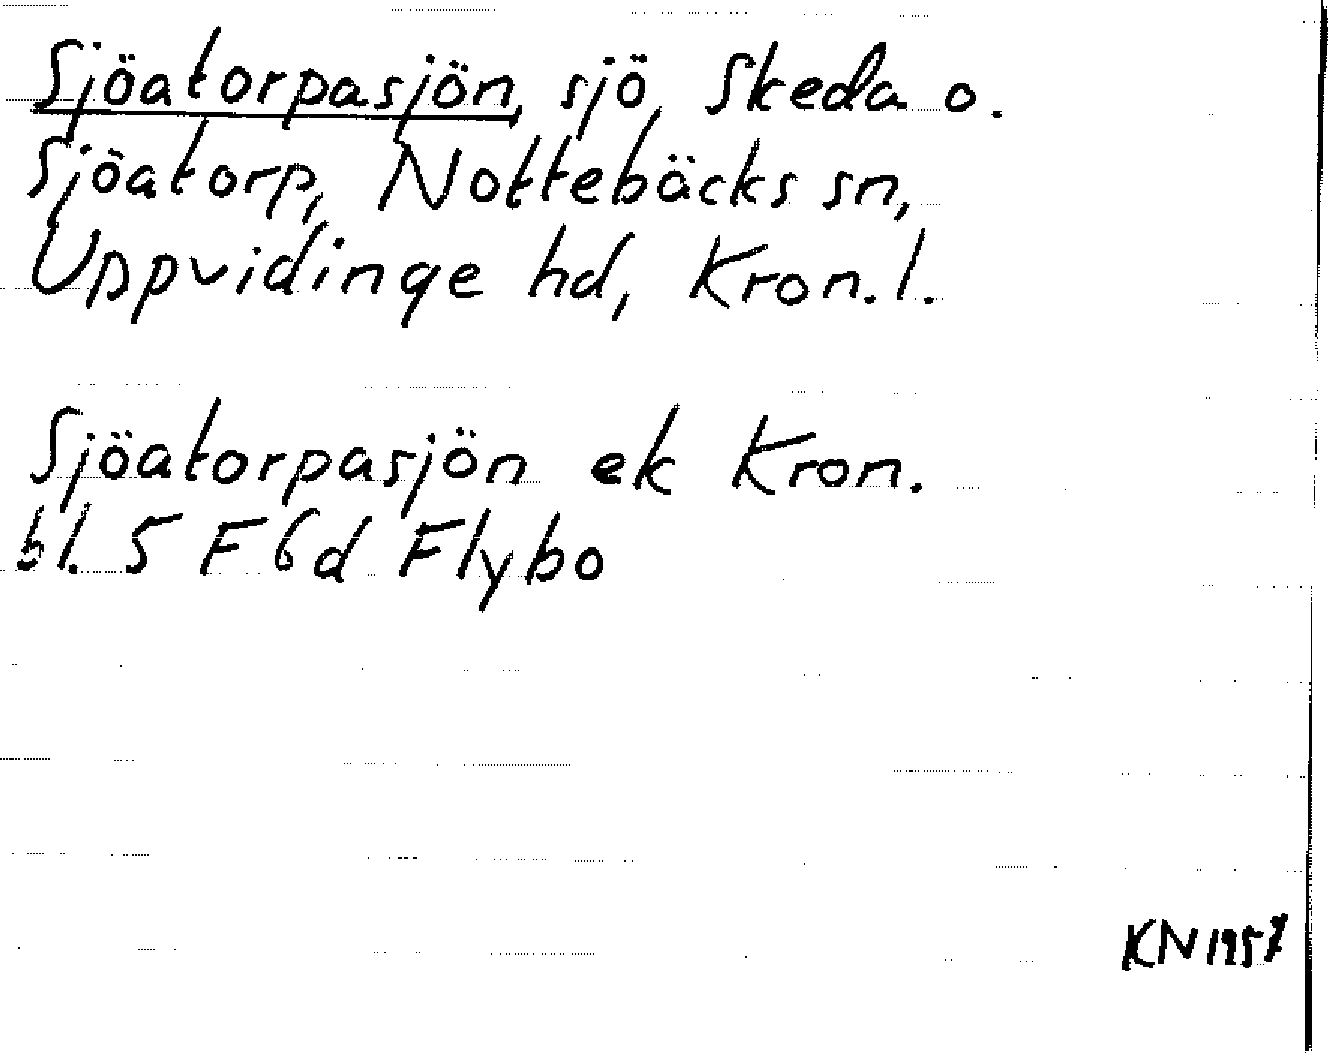 Sjöatorpasjön, sjö, Skeda o.
Sjöatorp, Nottebäcks sn,
Uppvidinge hd, Kron. l.
Sjöatorpasjön ek Kron.
bl. 5 F 6d Flybo
KN 1957